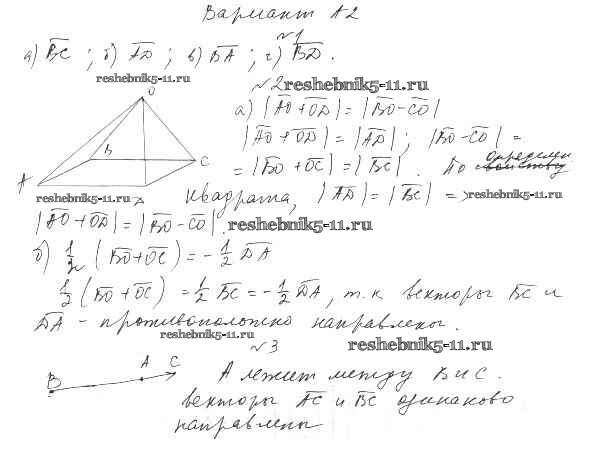 Вариант А2
№1
а) BC ; б) AD ; в) BA ; г) BD .
reshebnik5-11.ru
№2 reshebnik5-11.ru
а) |AO+OD| = |BO-CO|
|AO+OD| = |AD| ; |BO-CO| =
= |BO+OC| = |BC| . По определен
свойству
O
B
A
C
D
reshebnik5-11.ru
квадрата, |AD| = |BC| => reshebnik5-11.ru
|AO+OD| = |BO-CO|. reshebnik5-11.ru
б) 1/2 (BO+OC) = -1/2 DA
1/2 (BO+OC) = 1/2 BC = -1/2 DA, т.к. векторы BC и
DA - противоположно направлены.
reshebnik5-11.ru
№3 reshebnik5-11.ru
B A C
А лежит между В и С.
векторы AC и BC одинаково
направлены